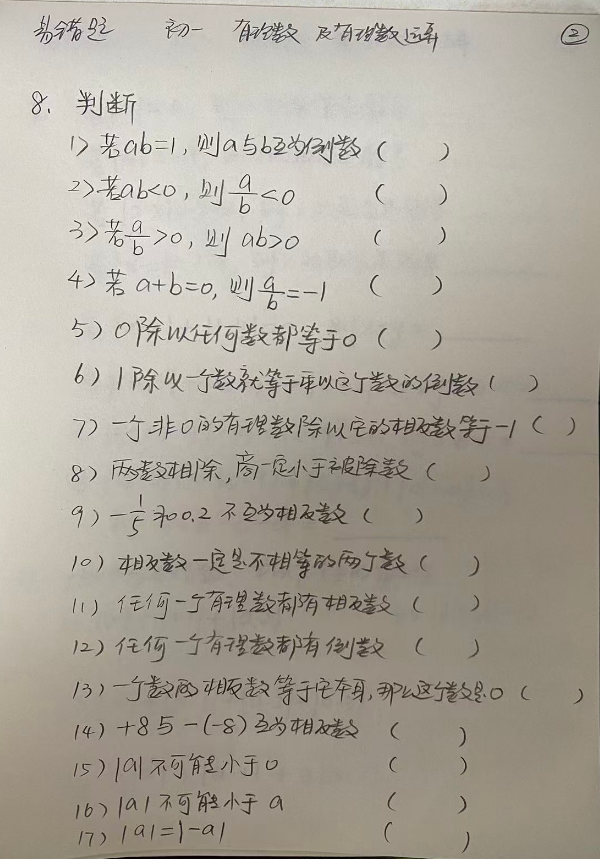 易错题 初一 有理数 及有理数运算 ②
8. 判断
1) 若ab=1, 则a与b互为倒数 ( )
2) 若ab<0, 则a/b<0 ( )
3) 若a/b>0, 则 ab>0 ( )
4) 若 a+b=0, 则a/b=-1 ( )
5) 0除以任何数都等于0 ( )
6) 1除以一个数就等于乘以这个数的倒数 ( )
7) 一个非0的有理数除以它的相反数等于-1 ( )
8) 两数相除, 商一定小于被除数 ( )
9) -1/5和0.2 不互为相反数 ( )
10) 相反数一定是不相等的两个数 ( )
11) 任何一个有理数都有相反数 ( )
12) 任何一个有理数都有倒数 ( )
13) 一个数的相反数等于它本身, 那么这个数是0 ( )
14) +8与-(-8)互为相反数 ( )
15) |a|不可能小于0 ( )
16) |a|不可能小于a ( )
17) |a|=|-a| ( )